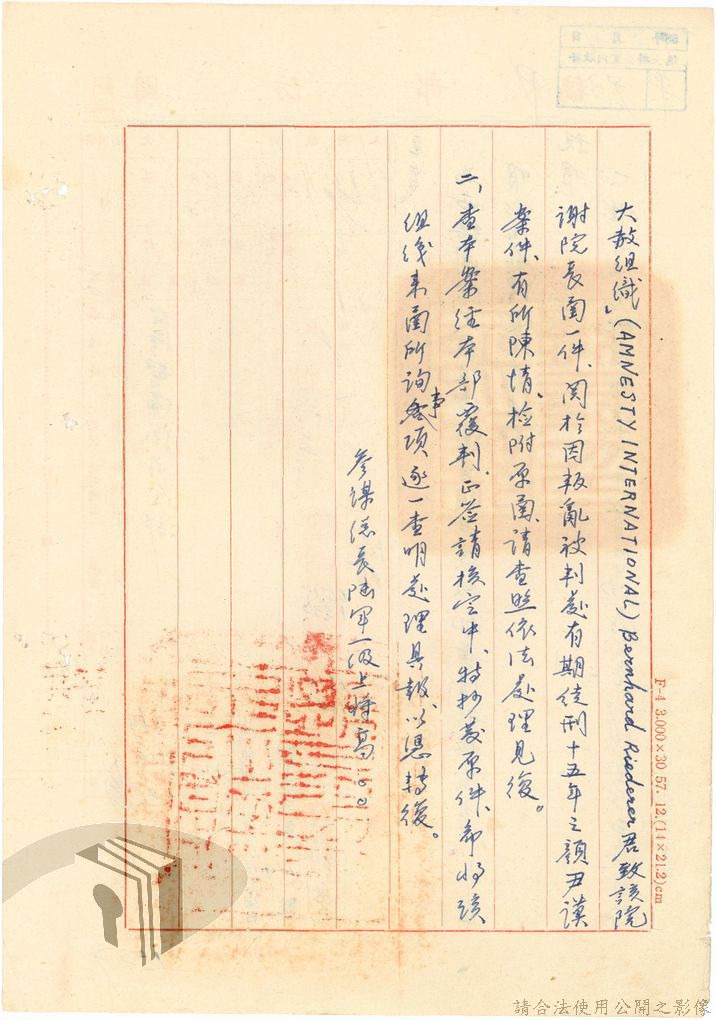 大赦組織」(AMNESTY INTERNATIONAL) Bernhard Riederer君致該院
謝院長函一件、関於因叛亂被判處有期徒刑十五年之顏尹謨
案件、有所陳情、检附原函、請查照依法處理見復。
二、查本案経本部覆判、正签請核定中、特抄茇原件、希将該
組織来函所詢各事項逐一查明處理具報、以憑轉復。
参謀總長陸軍一級上將高。。
F-4 3.000×30 57. 12.(14×21.2)cm
請合法使用公開之影像